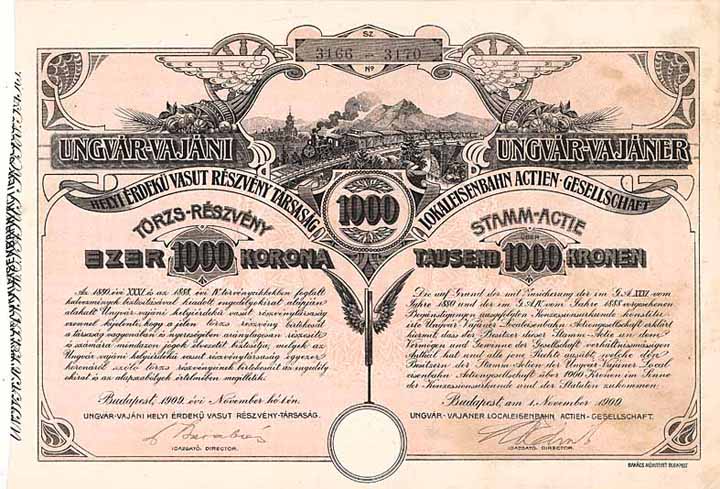 SZ
3166 3170
No
UNGVÁR-VAJÁNI
HELYI ÉRDEKŰ VASUT RÉSZVÉNY TÁRSASÁG
TÖRZS-RÉSZVÉNY
EZER 1000 KORONA
Az 1880. évi XXXI. és az 1888. évi IV. törvénycikkekben foglalt
kedvezmények biztosításával kiadott engedélyokirat alapján
alakult Ungvár-vajáni helyiérdekű vasut részvénytársaság
ezennel kijelenti, hogy a jelen törzs részvény birtokosát
a társaság vagyonában és nyereségében aránylagosan részesíti
és számára mindazon jogok élvezetét biztosítja, melyek az
Ungvár-vajáni helyiérdekű vasut részvénytársaság egyezer
koronáról szóló törzs részvényeinek birtokosait az engedély
okirat és az alapszabályok értelmében megilletik.
Budapest, 1909. évi November hó 1-én.
UNGVÁR-VAJÁNI HELYI ÉRDEKŰ VASUT RÉSZVÉNY-TÁRSASÁG.
IGAZGATÓ. DIRECTOR.
1000
UNGVÁR-VAJÁNER
LOKALEISENBAHN ACTIEN-GESELLSCHAFT
STAMM-ACTIE
ÜBER
TAUSEND 1000 KRONEN
Die auf Grund der mit Zusicherung der im G.A. XXXI. vom
Jahre 1880 und der im G.A. IV. vom Jahre 1888 vorgesehenen
Begünstigungen ausgefolgten Konzessionsurkunde konstitu-
ierte Ungvár-Vajáner Localeisenbahn Actiengesellschaft erklärt
hiermit dass der Besitzer dieser Stamm-Actie an dem
Vermögen und Gewinne der Gesellschaft verhältnismässigen
Anteil hat und alle jene Rechte ausübt, welche den
Besitzern der Stamm-Actien der Ungvár-Vajáner Local
eisenbahn Actiengesellschaft über 1000 Kronen im Sinne
der Konzessionsurkunde und der Statuten zukommen.
Budapest, am 1. November 1909.
UNGVÁR-VAJÁNER LOCALEISENBAHN ACTIEN-GESELLSCHAFT.
IGAZGATÓ. DIRECTOR.